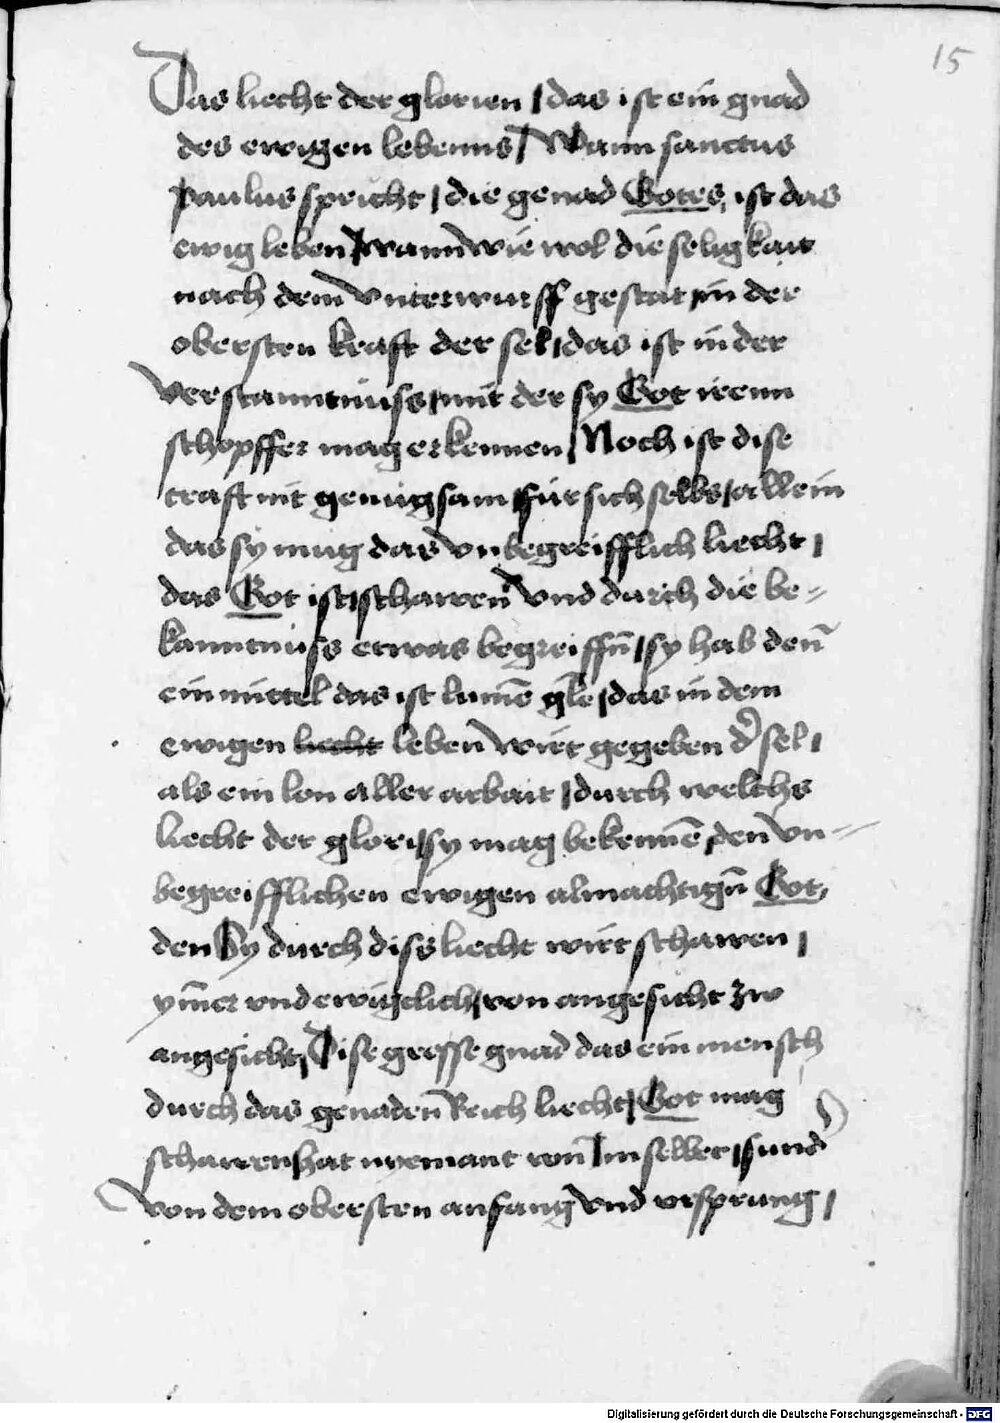 15
Das liecht der glorien / das ist ein gnad
des ewigen lebenns / Wann sanctus
Paulus spricht / die genad Gotes, ist das
ewig leben / wann wie wol die seligkait
nach dem vnterwurff gestat / in der
obersten kraft der sel / das ist in der
verstanntnuss / mit der sy Got irenn
schopffer mag erkennen / Noch ist dise
craft nit genugsam / für sich selbs / allein
das sy mug das vnbegreifflich liecht /
das Got ist / schawen vnd durch die be-
kanntnuss etwas begreiffn̄ / sy hab den̄
ein mittel das ist lumē gl̄e / das in dem
ewigen liecht leben wirt gegeben d̄ sel /
als ein lon aller arbait / durch welchs
liecht der glori / sy mag bekennē den vn-
begreifflichen ewigen almachtign̄ Got,
den Sy durch diss liecht wirt schawen /
ym̄er vnd ewigclich / von angesicht zw
angesicht, Dise grosse gnad das ein mensch
durch das genaden Reich liecht / Got mag
schawen / hat nyemant von̄ Im selber / sund̄
von dem obersten anfang vnd vrsprung /
Digitalisierung gefördert durch die Deutsche Forschungsgemeinschaft - DFG